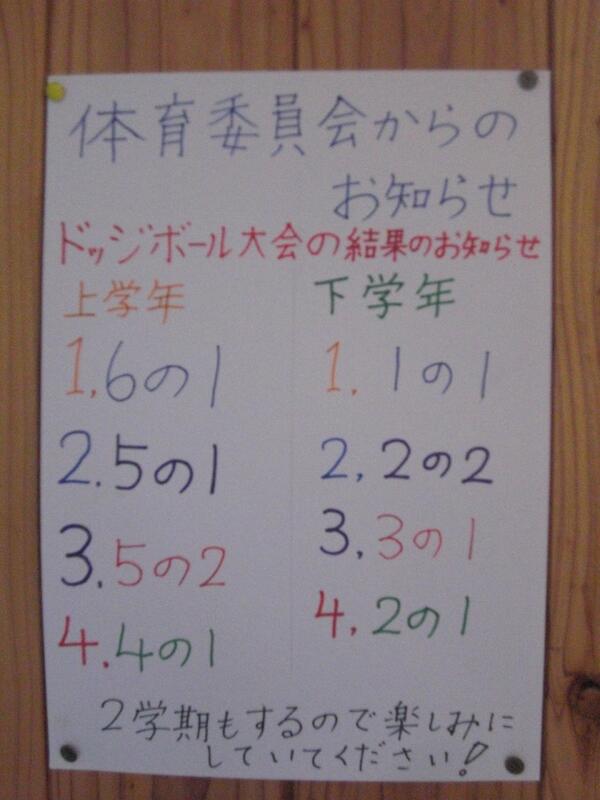 体育委員会からの
お知らせ
ドッジボール大会の結果のお知らせ
上学年
1.6の1
2.5の1
3.5の2
4.4の1
下学年
1.1の1
2,2の2
3,3の1
4,2の1
2学期もするので楽しみに
していてください!